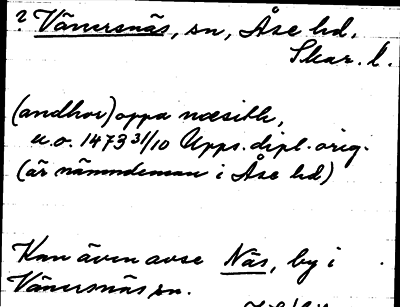 ? Vänersnäs, sn, Åse hd.
Skar. l.
(andhor) oppa næsith,
u.o. 1473 31/10 Upps. dipl. orig.
(är nämndeman i Åse hd)
Kan även avse Näs, by i
Vänersnäs sn.